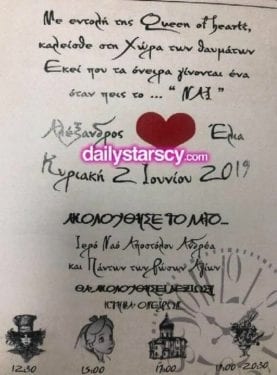 Με εντολή της Queen of heartt,
καλείσθε στη Χώρα των θαυμάτων
Εκεί που τα όνειρα γίνονται ένα
όταν πεις το ... " ΝΑΙ "
Αλέξανδρος Έλια
dailystarscy.com
Κυριακή 2 Ιουνίου 2019
ΑΚΟΛΟΥΘΗΣΕ ΤΟ ΛΑΓΟ...
Ιερό Ναό Αποστόλου Ανδρέα
και Πάντων των Αγίων
12:30 15:00 17:00 19:00-20:30